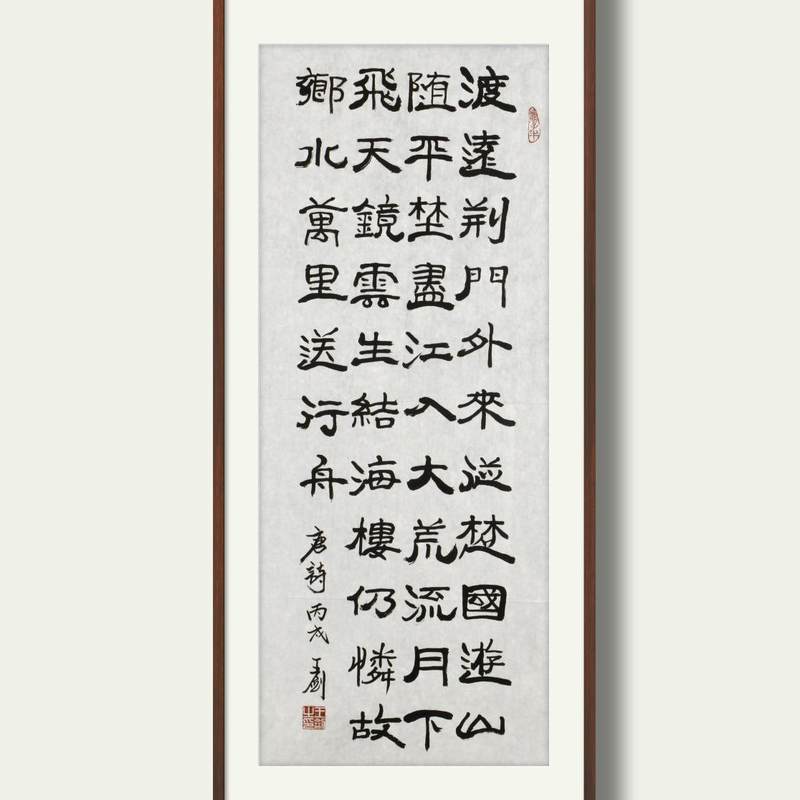 渡遠荆門外來從楚國遊山
随平埜盡江入大荒流月下
飛天鏡雲生結海樓仍憐故
鄉水萬里送行舟
唐詩 丙戌 王劍